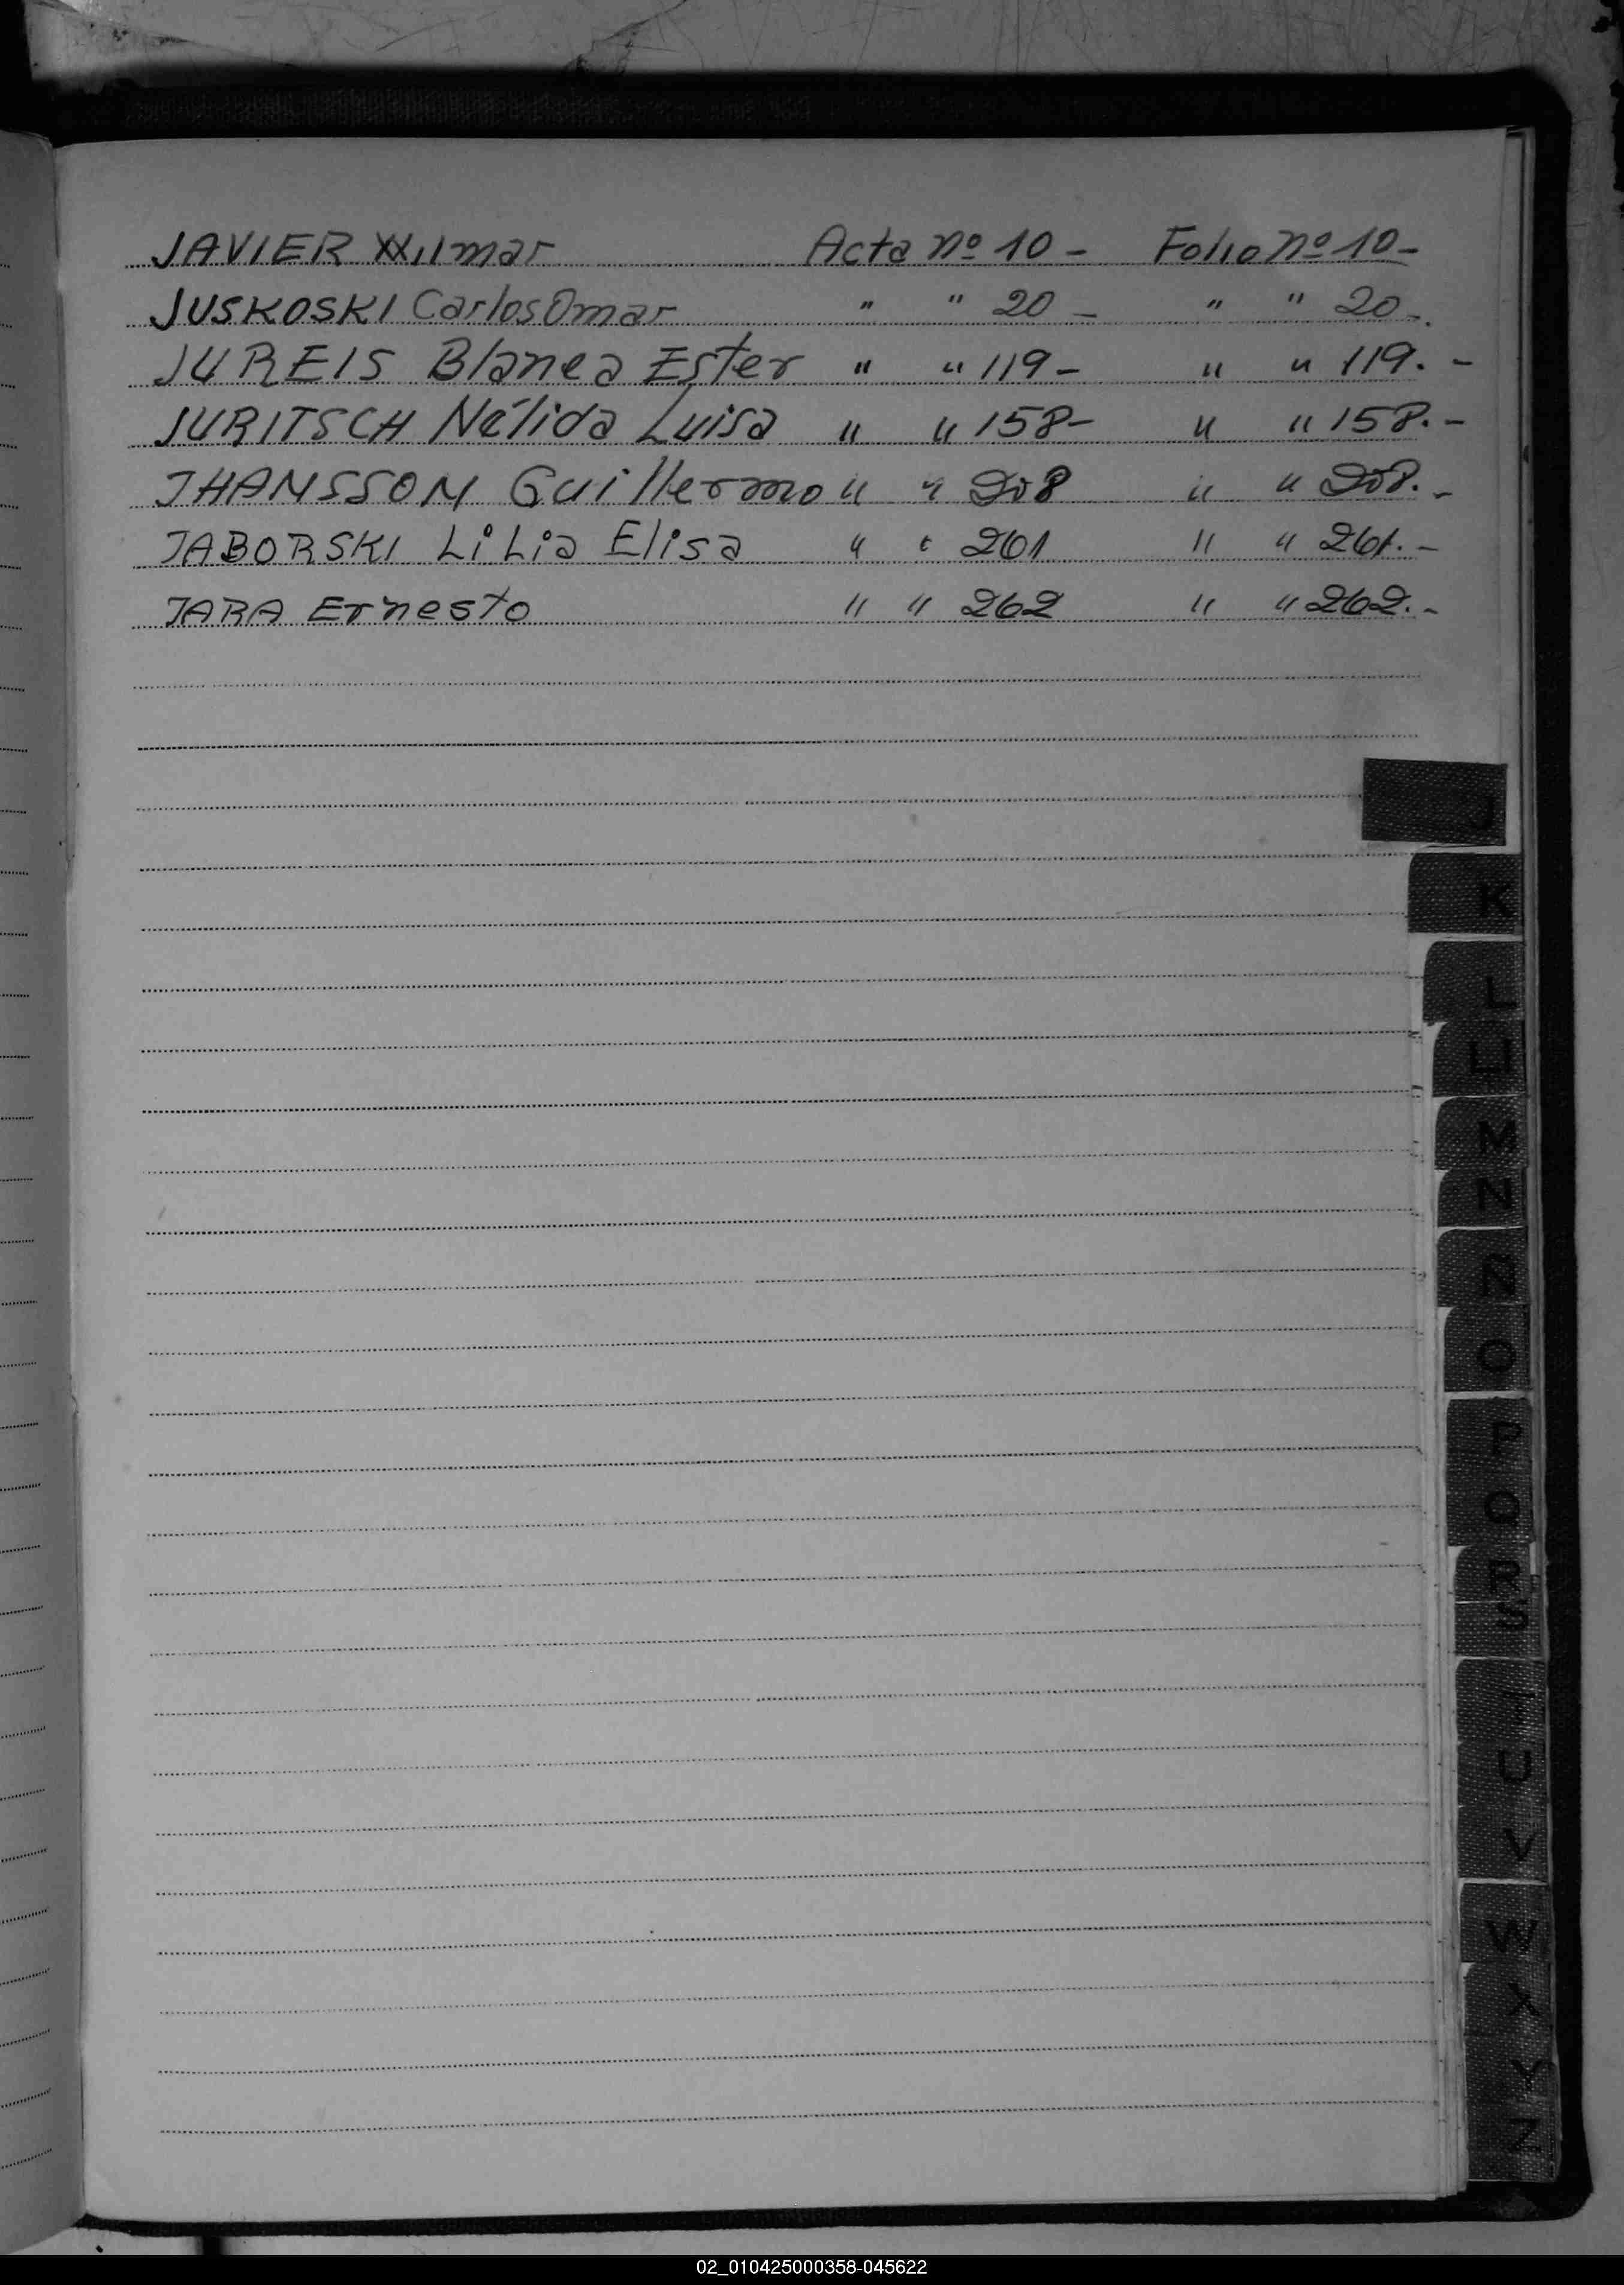 JAVIER Wilmar Acta nº 10 - Folio nº 10 -
JUSKOSKI Carlos Omar " " 20 - " " 20 -.
JUREIS Blanca Ester " " 119 - " " 119. -
JURITSCH Nélida Luisa " " 158 - " " 158. -
JHANSSON Guillermo " " 208 " " 208. -
JABORSKI LiLia Elisa " " 261 " " 261. -
JARA Ernesto " " 262 " " 262. -
J
K
L
LL
M
N
Ñ
O
P
Q
R
S
T
U
V
W
X
Y
Z
02_010425000358-045622